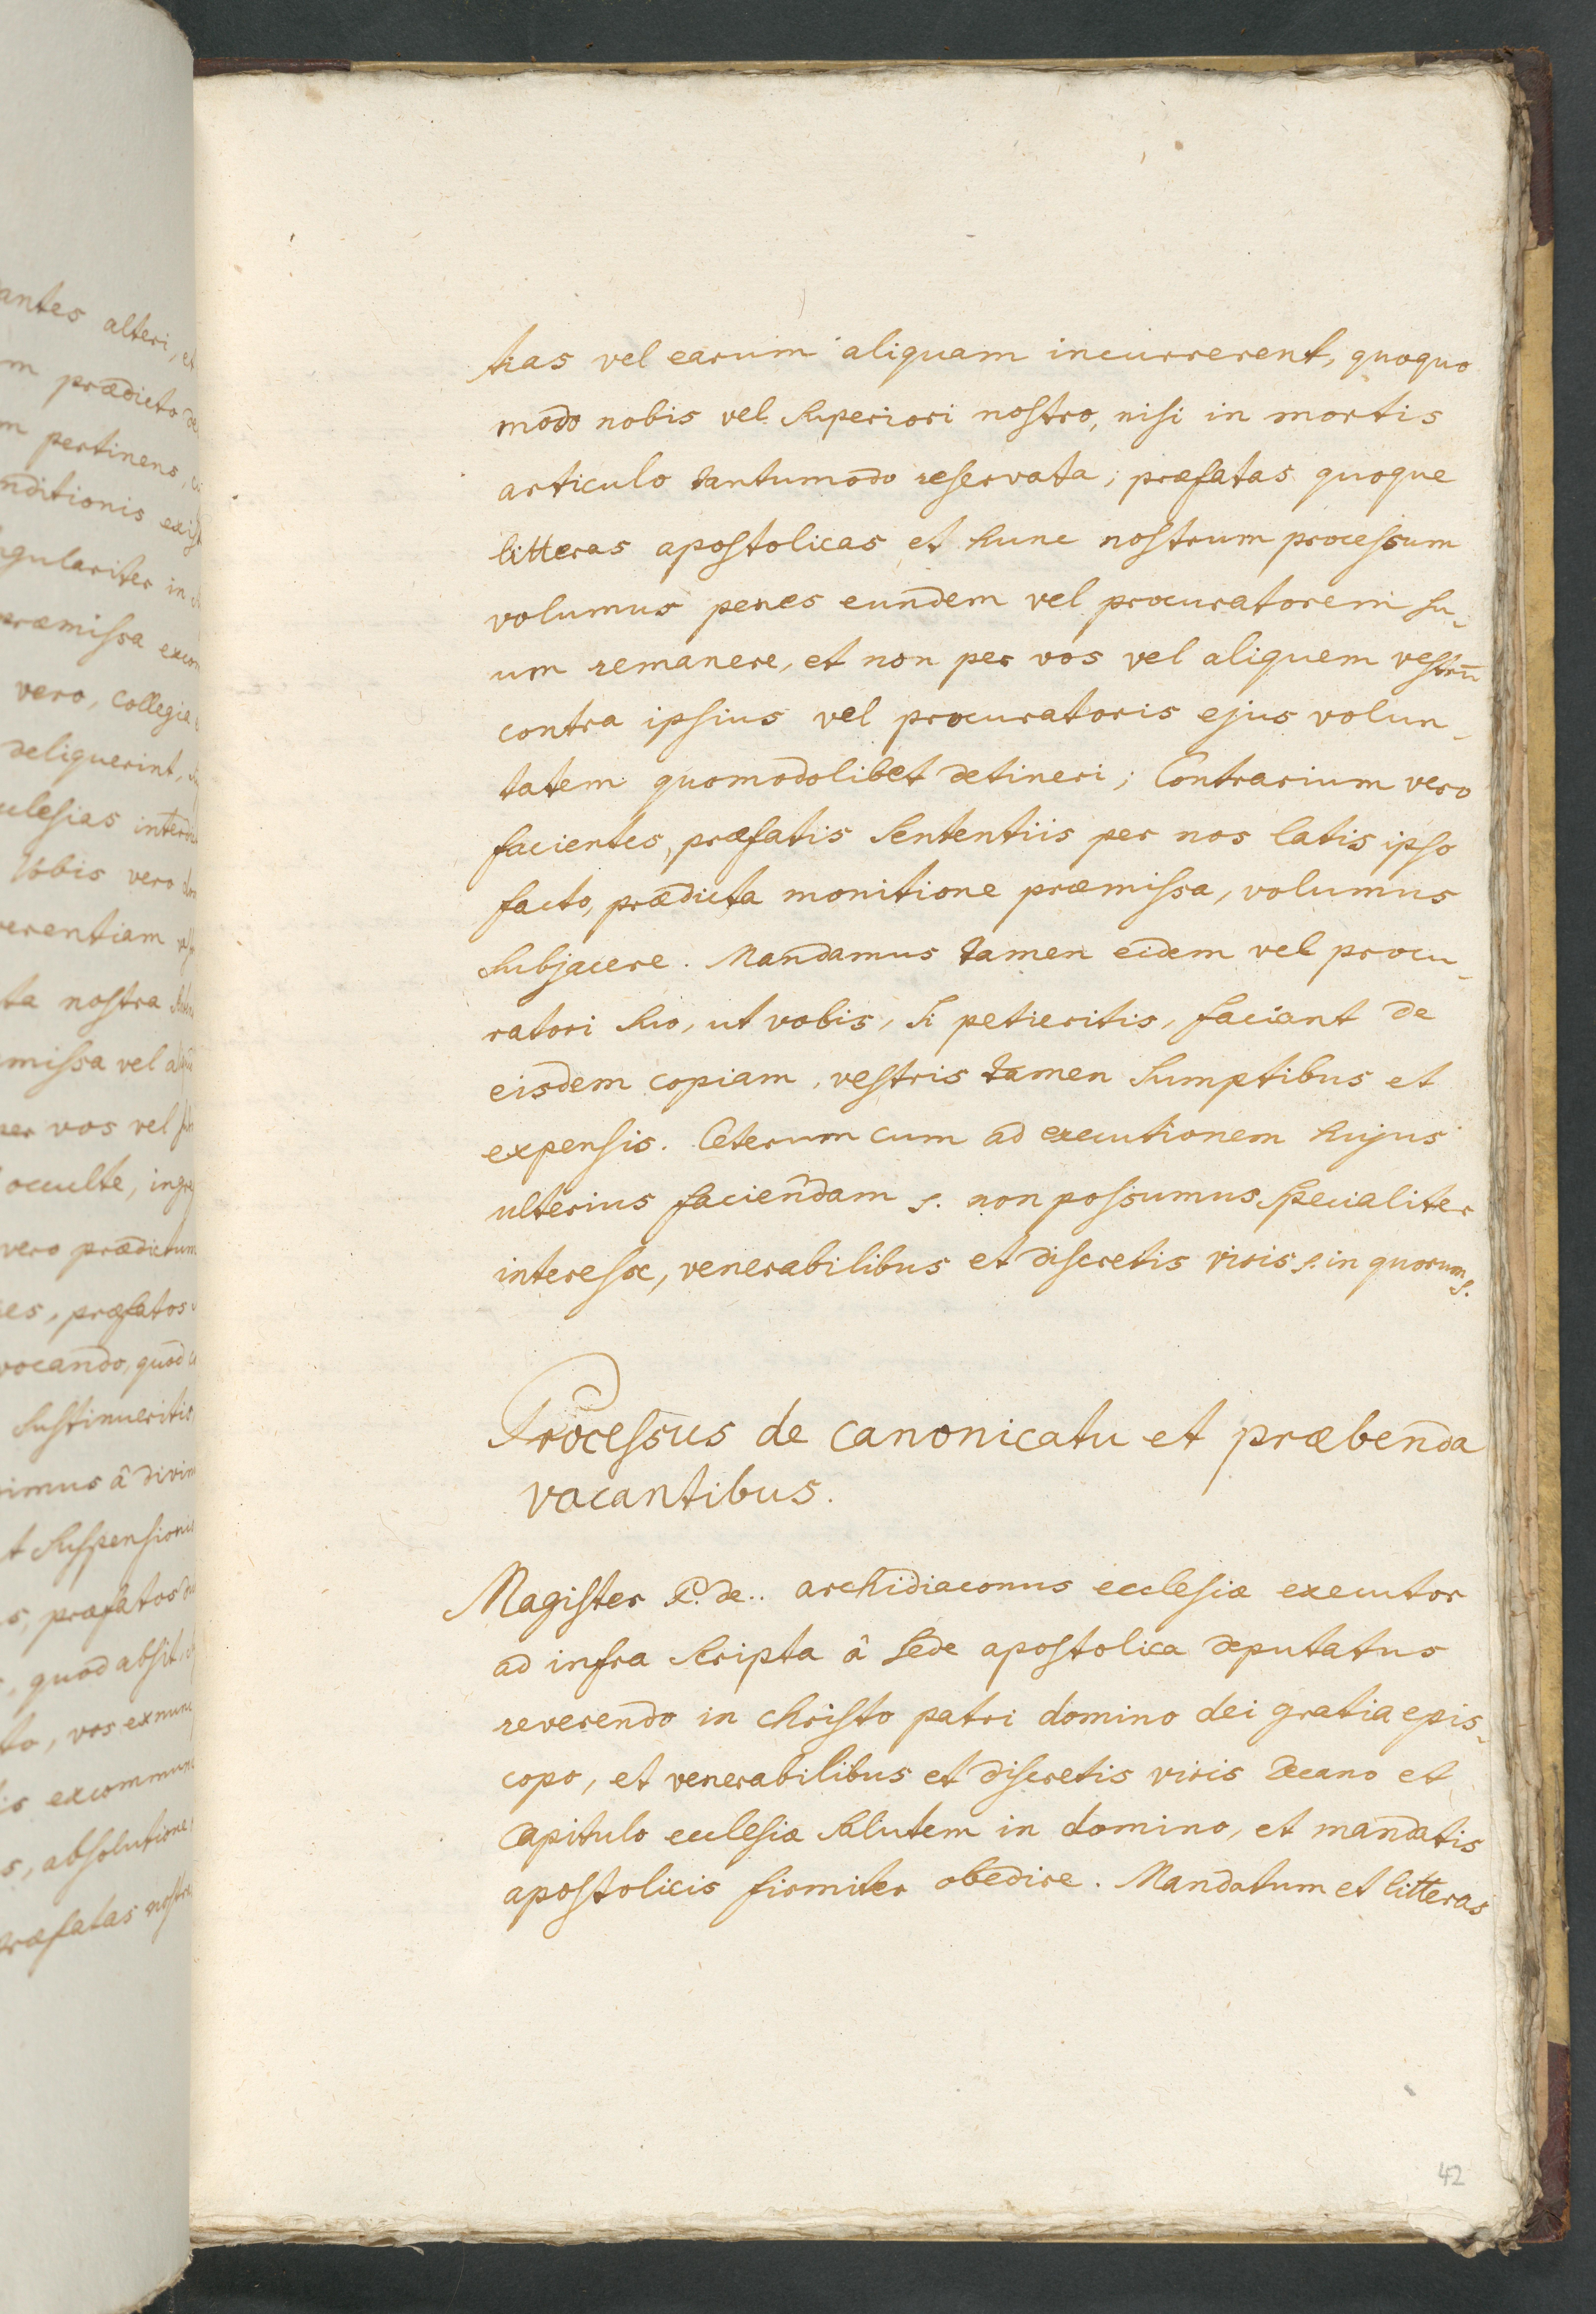 antes alteri, et
m prædicto de
m pertinens,
nditionis
gulariter in
ræmissa excom
vero, collegia
deliquerint,
clesias interdi
Vobis vero
verentiam
ta nostra
missa vel
per vos vel
occulte, ingre
vero prædictum
es, præfatos
vocando, quod
sustinueritis,
imus â divin
t suspensionis
s, præfatos
, quod absit,
to, vos exnunc
is excommuni
s, absolutione
præfatas nostra
tias vel earum aliquam incurrerent, quoquo
modo nobis vel superiori nostro, nisi in mortis
articulo tantumodo reservata; præfatas quoque
litteras apostolicas et hunc nostrum processum
volumus penes eundem vel procuratorem su-
um remanere, et non per vos vel aliquem vestrū
contra ipsius vel procuratoris ejus volun-
tatem quomodolibet detineri; Contrarium vero
facientes, præfatis sententiis per nos latis ipso
facto, prædicta monitione præmissa, volumus
subjacere. Mandamus tamen eidem vel procu-
ratori suo, ut vobis, si petieritis, faciant de
eisdem copiam, vestris tamen sumptibus et
expensis. Ceterum cum ad executionem hujus
ulterius faciendam s. non possumus specialiter
interesse, venerabilibus et discretis viris s. in quorum s.
Processus de canonicatu et præbenda
vacantibus.
Magister P. de.. archidiaconus ecclesiæ executor
ad infra scripta â sede apostolica deputatus
reverendo in christo patri domino dei gratia epis-
copo, et venerabilibus et discretis viris decano et
Capitulo ecclesiæ salutem in domino, et mandatis
apostolicis firmiter obedire. Mandatum et litteras
42